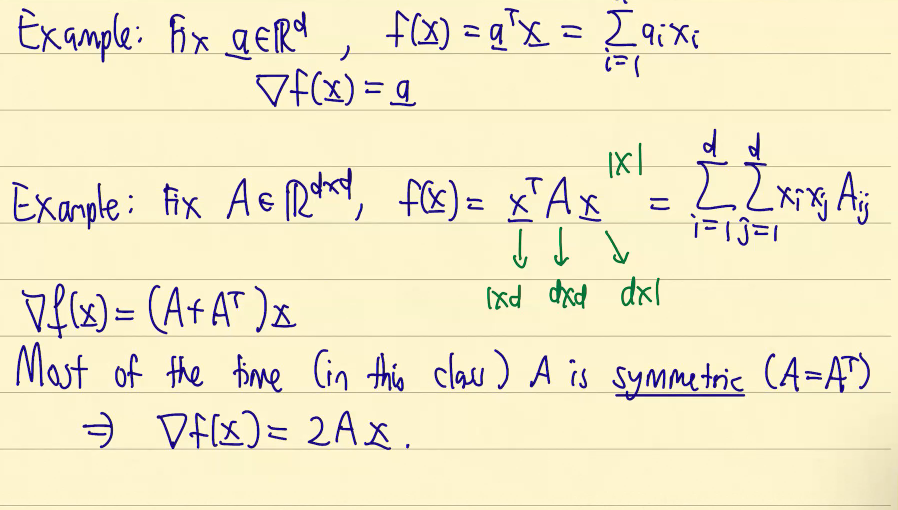 Example: Fix a∈ℝᵈ, f(x) = aᵀx = Σ_{i=1} aᵢxᵢ
∇f(x) = a
Example: Fix A∈ℝ^{d×d}, f(x) = xᵀAx = Σ_{i=1}^{d} Σ_{j=1}^{d} xᵢxⱼAᵢⱼ
1×1
↓ ↓ ↘
1×d d×d d×1
∇f(x) = (A+Aᵀ)x
Most of the time (in this class) A is symmetric (A=Aᵀ)
⇒ ∇f(x) = 2Ax.